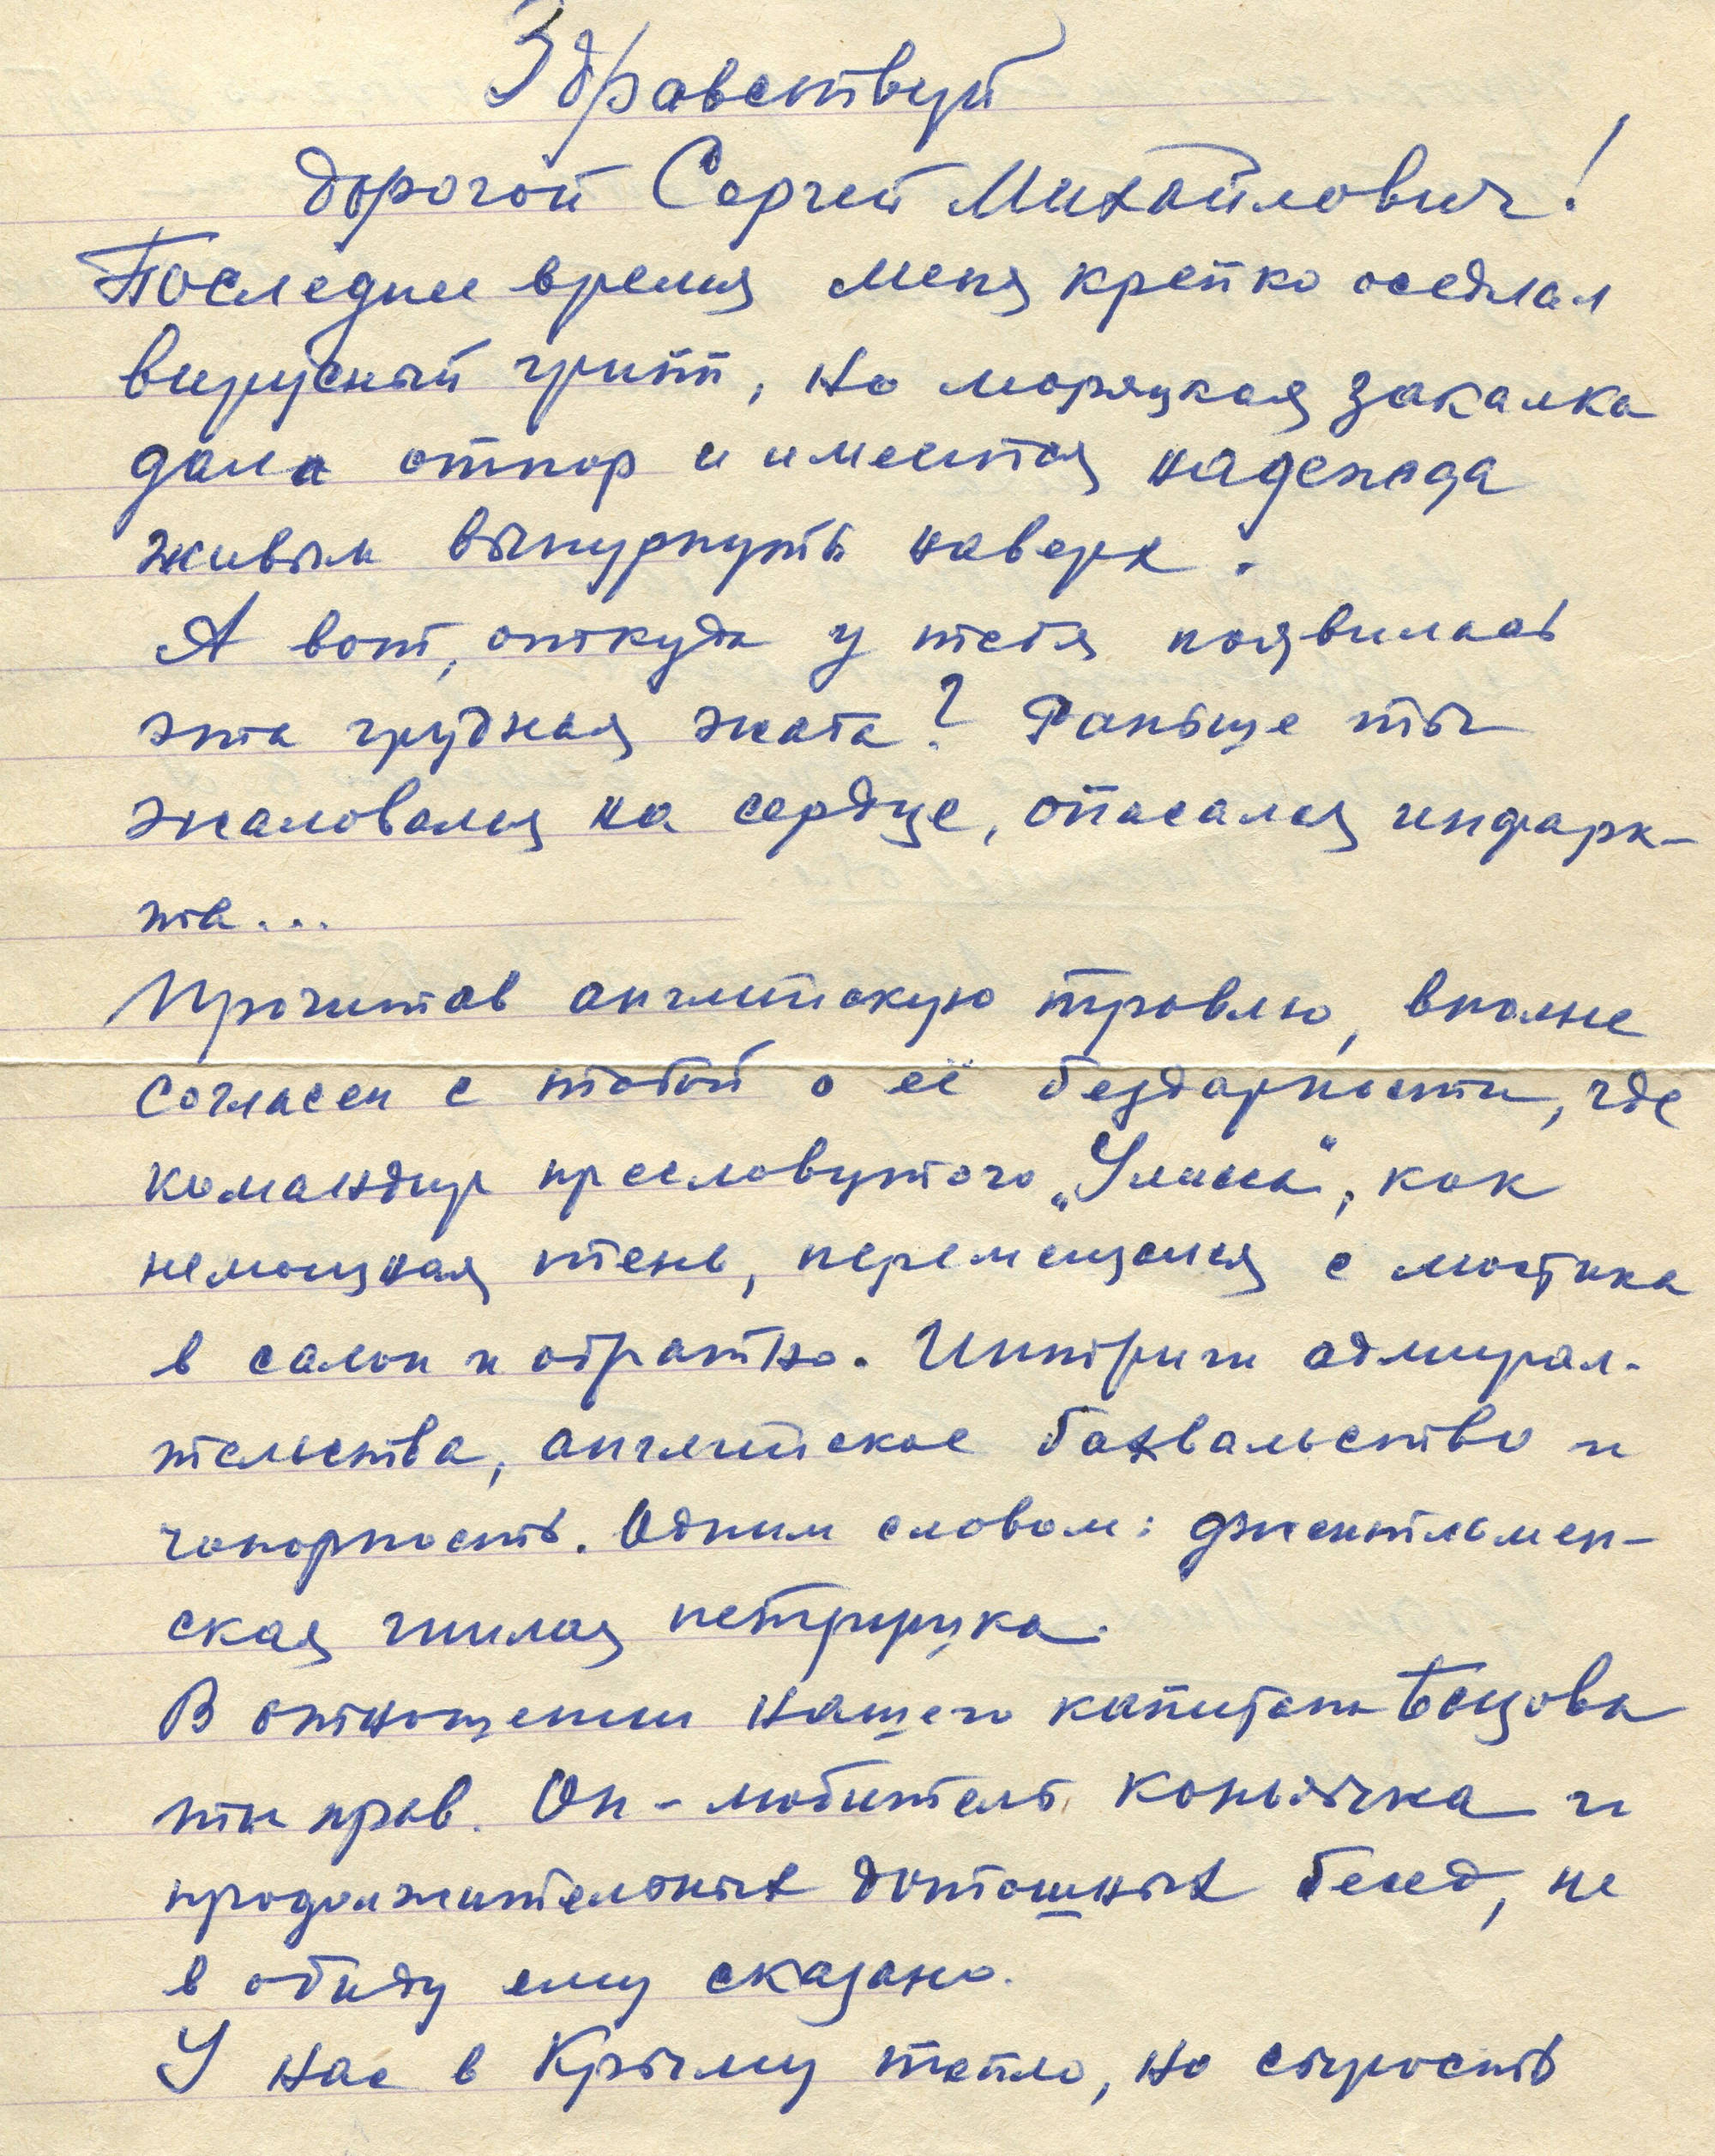 Здравствуй
дорогой Сергей Михайлович!
Последнее время меня крепко оседлал
вирусный грипп, но моряцкая закалка
дала отпор и имеется надежда
живым вынурнуть наверх.
А вот, откуда у тебя появилась
эта грудная жаба? Раньше ты
жаловался на сердце, опасался инфарк-
та...
Прочитав английскую травлю, вполне
согласен с тобой о её бездарности, где
командир пресловутого „Улисса“, как
немощная тень, перемещался с мостика
в салон и обратно. Интриги адмирал-
тельства, английское бахвальство и
чопорность. Одним словом: джентльмен-
ская гнилая петрушка.
В отношении нашего капитана
ты прав. Он – любитель коньячка и
продолжительных дотошных бесед, не
в обиду ему сказано.
У нас в Крыму тепло, но сырость